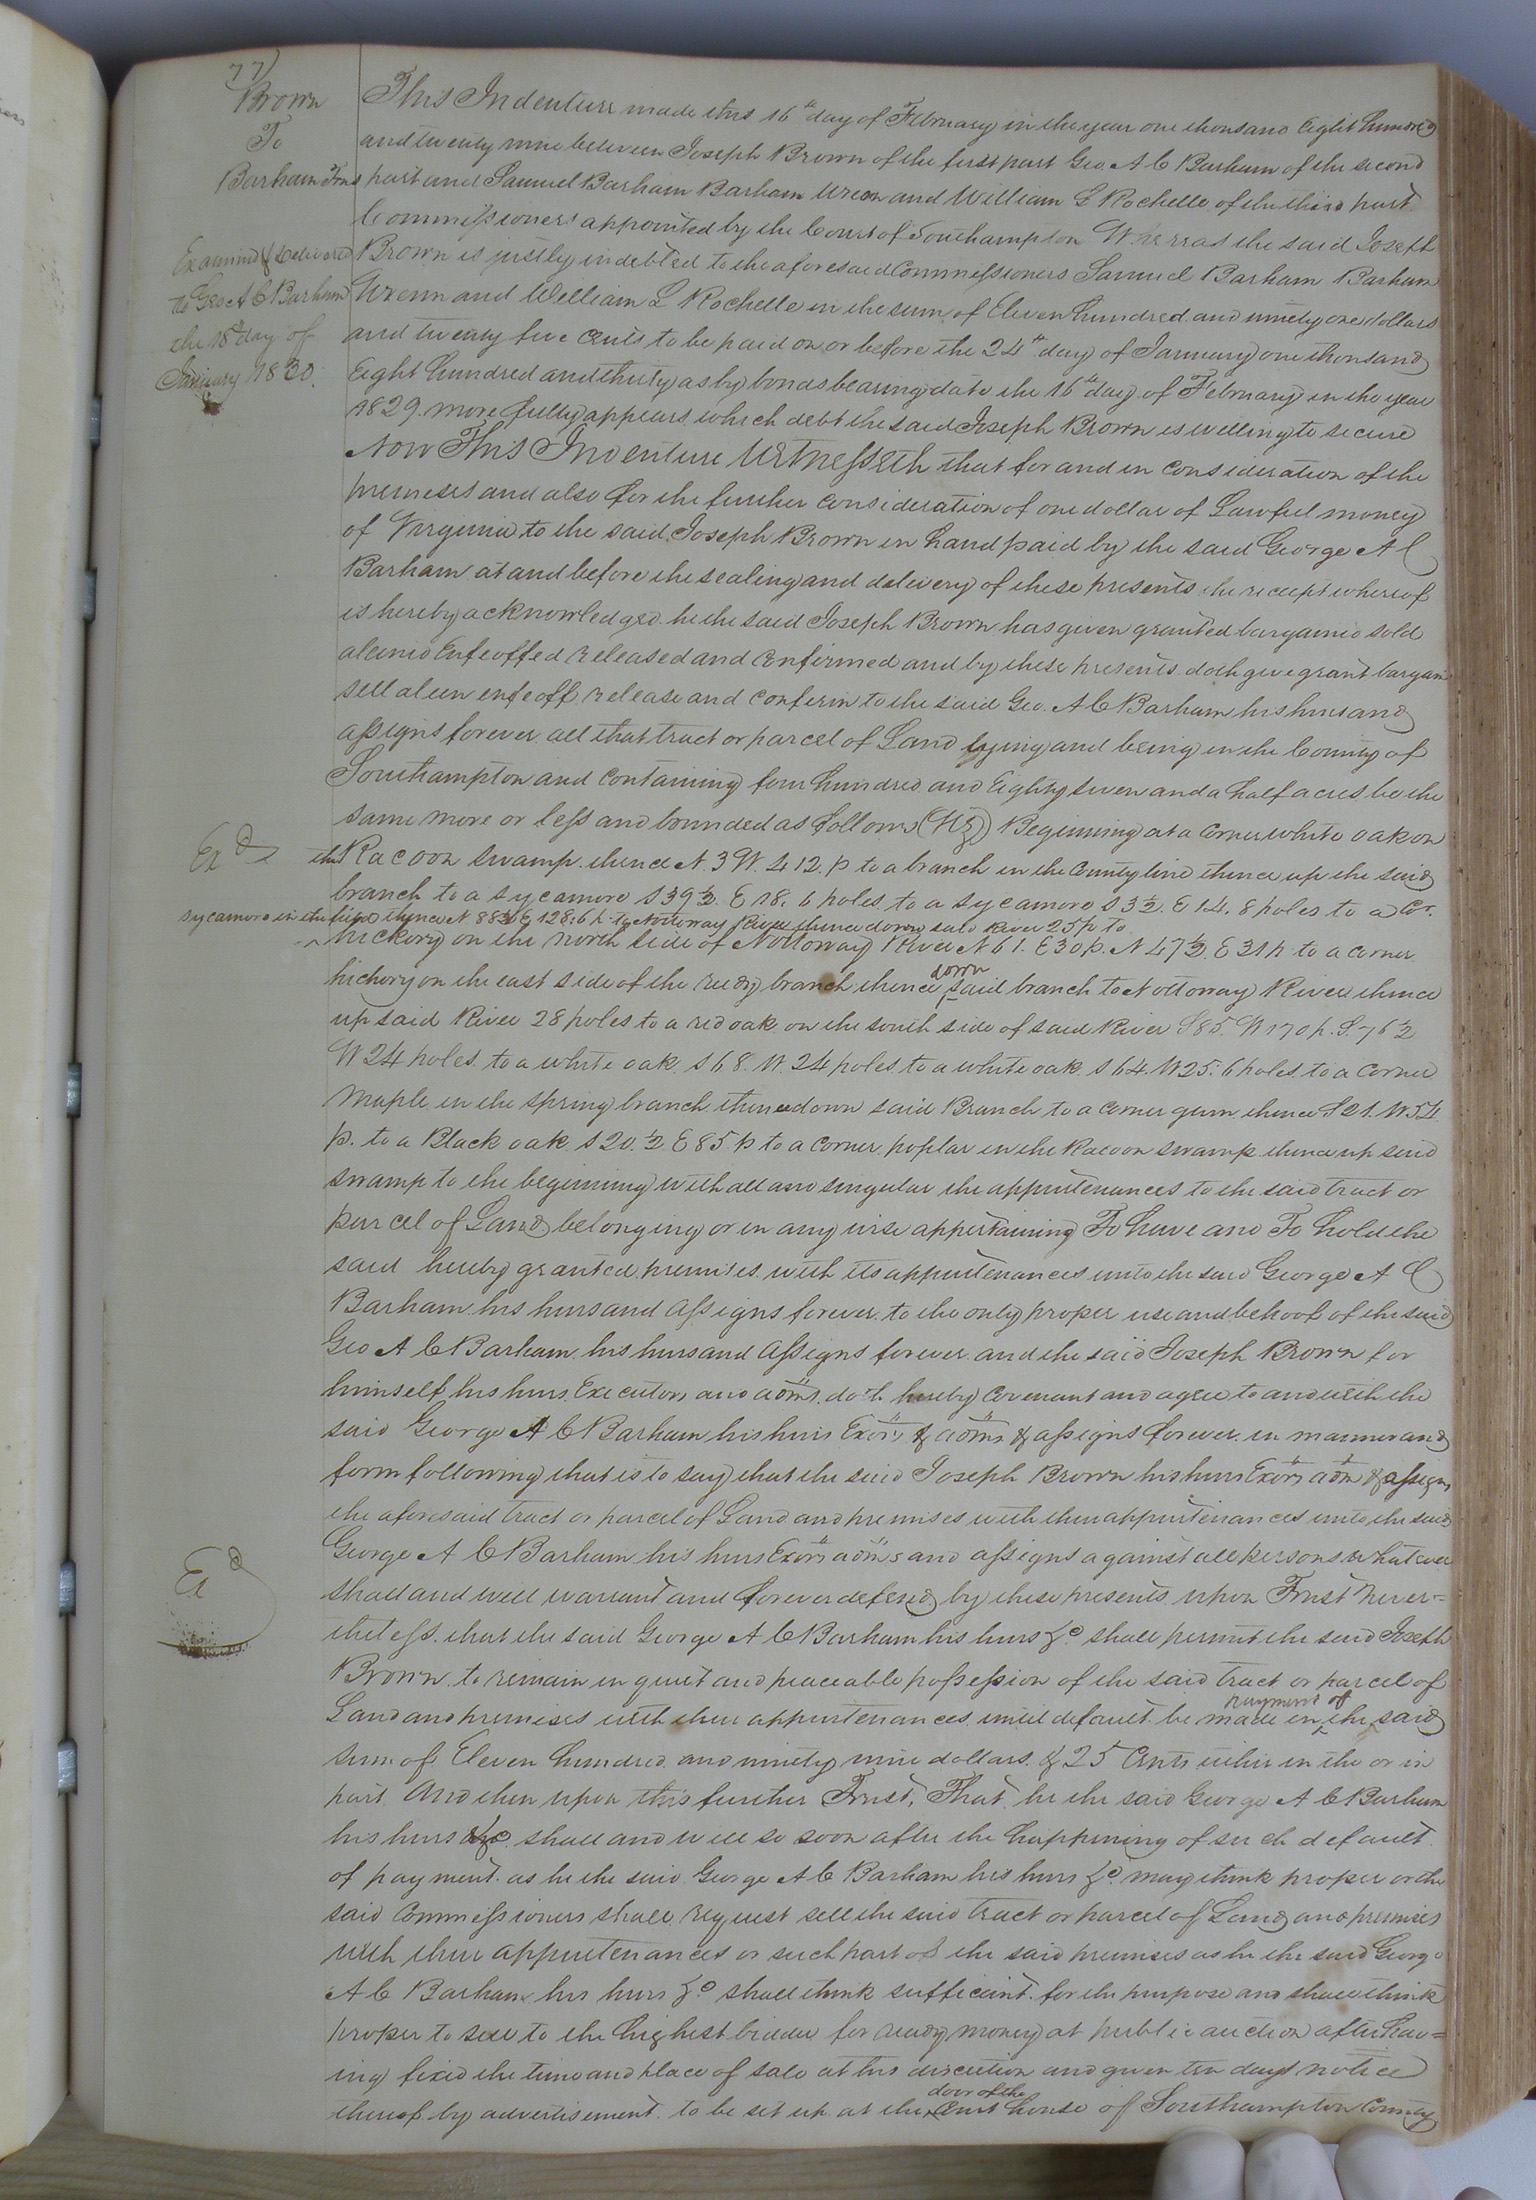 77)
Brown
To
Barham Trus
Examined & Delivered
To Geo A C Barham
the 18th day of
January 1830.
This Indenture made this 16th day of February in the year one thousand Eight hundred
and twenty nine between Joseph Brown of the first part Geo. A C Barham of the second
part and Samuel Barham Barham Wrenn and William L Rochelle of the third part
Commissioners appointed by the Court of Southampton Whereas the said Joseph
Brown is justly indebted to the aforesaid Commissioners Samuel Barham Barham
Wrenn and William L Rochelle in the sum of Eleven hundred and ninety one dollars
and twenty five cents to be paid on or before the 24th day of January one thousand
Eight hundred and thirty as by bonds bearing date the 16th day of February in the year
1829 more fully appears which debt the said Joseph Brown is willing to secure
Now This Indenture Witnesseth that for and in consideration of the
premises and also for the further consideration of one dollar of Lawful money
of Virginia to the said Joseph Brown in hand paid by the said George A C
Barham at and before the sealing and delivery of these presents the receipt whereof
is hereby acknowledged he the said Joseph Brown has given granted bargained sold
aliened Enfeoffed released and confirmed and by these presents doth give grant bargain
sell alien enfeoff release and confirm to the said Geo. A C Barham his heirs and
assigns forever all that tract or parcel of Land lying and being in the County of
Southampton and containing four hundred and Eighty seven and a half acres be the
same more or less and bounded as follows (Viz) Beginning at a corner white oak on
Exd the Racoon swamp thence N. 3 W. 412. p to a branch in the County line thence up the said
branch to a sycamore S 39½. E 18. 6 poles to a sycamore S 3½. E 14. 8 poles to a Cor.
sycamore in the line thence N 88½ E 128.6 p. to Nottoway River thence down said River 25 p to
hickory on the north side of Nottoway River N 61. E 30 p. N 47½. E 31 p to a corner
hickory on the east side of the reedy branch thence down said branch to Nottoway River thence
up said River 28 poles to a red oak on the south side of said River S 85. W 170 p. S. 76½
W 24 poles to a white oak S 68. W. 24 poles to a white oak S 64. W 25. 6 poles to a corner
Maple in the spring branch thence down said Branch to a corner gum thence S 21. W 54
p. to a Black oak S 20.½ E 85 p to a corner poplar in the Racoon swamp thence up said
swamp to the beginning with all and singular the appurtenances to the said tract or
parcel of Land belonging or in any wise appertaining To have and To hold the
said hereby granted premises with its appurtenances unto the said George A C
Barham his heirs and assigns forever to the only proper use and behoof of the said
Geo A C Barham his heirs and assigns forever and the said Joseph Brown for
himself his heirs Executors and adms. doth hereby covenant and agree to and with the
said George A C Barham his heirs Exors & adms & assigns forever in manner and
form following that is to say that the said Joseph Brown his heirs Exors adm & assigns
the aforesaid tract or parcel of Land and premises with their appurtenances unto the said
George A C Barham his heirs Exors adms and assigns against all persons whatever
Exd
shall and will warrant and forever defend by these presents upon Trust never=
theless that the said George A C Barham his heirs &c shall permit the said Joseph
Brown to remain in quiet and peaceable possession of the said tract or parcel of
Land and premises with their appurtenances until default be made in payment of the said
sum of Eleven hundred and ninety nine dollars & 25 Cents either in the or in
part And then upon this further Trust, That he the said George A C Barham
his heirs &c shall and will so soon after the happening of such default
of payment as he the said George A C Barham his heirs &c may think proper or the
said Commissioners shall request sell the said tract or parcel of Land and premises
with their appurtenances or such part of the said premises as he the said George
A C Barham his heirs &c shall think sufficient for the purpose and shall think
proper to sell to the highest bidder for ready money at public auction after hav=
ing fixed the time and place of sale at his discretion and given ten days notice
thereof by advertisement to be set up at the door of the Court house of Southampton County